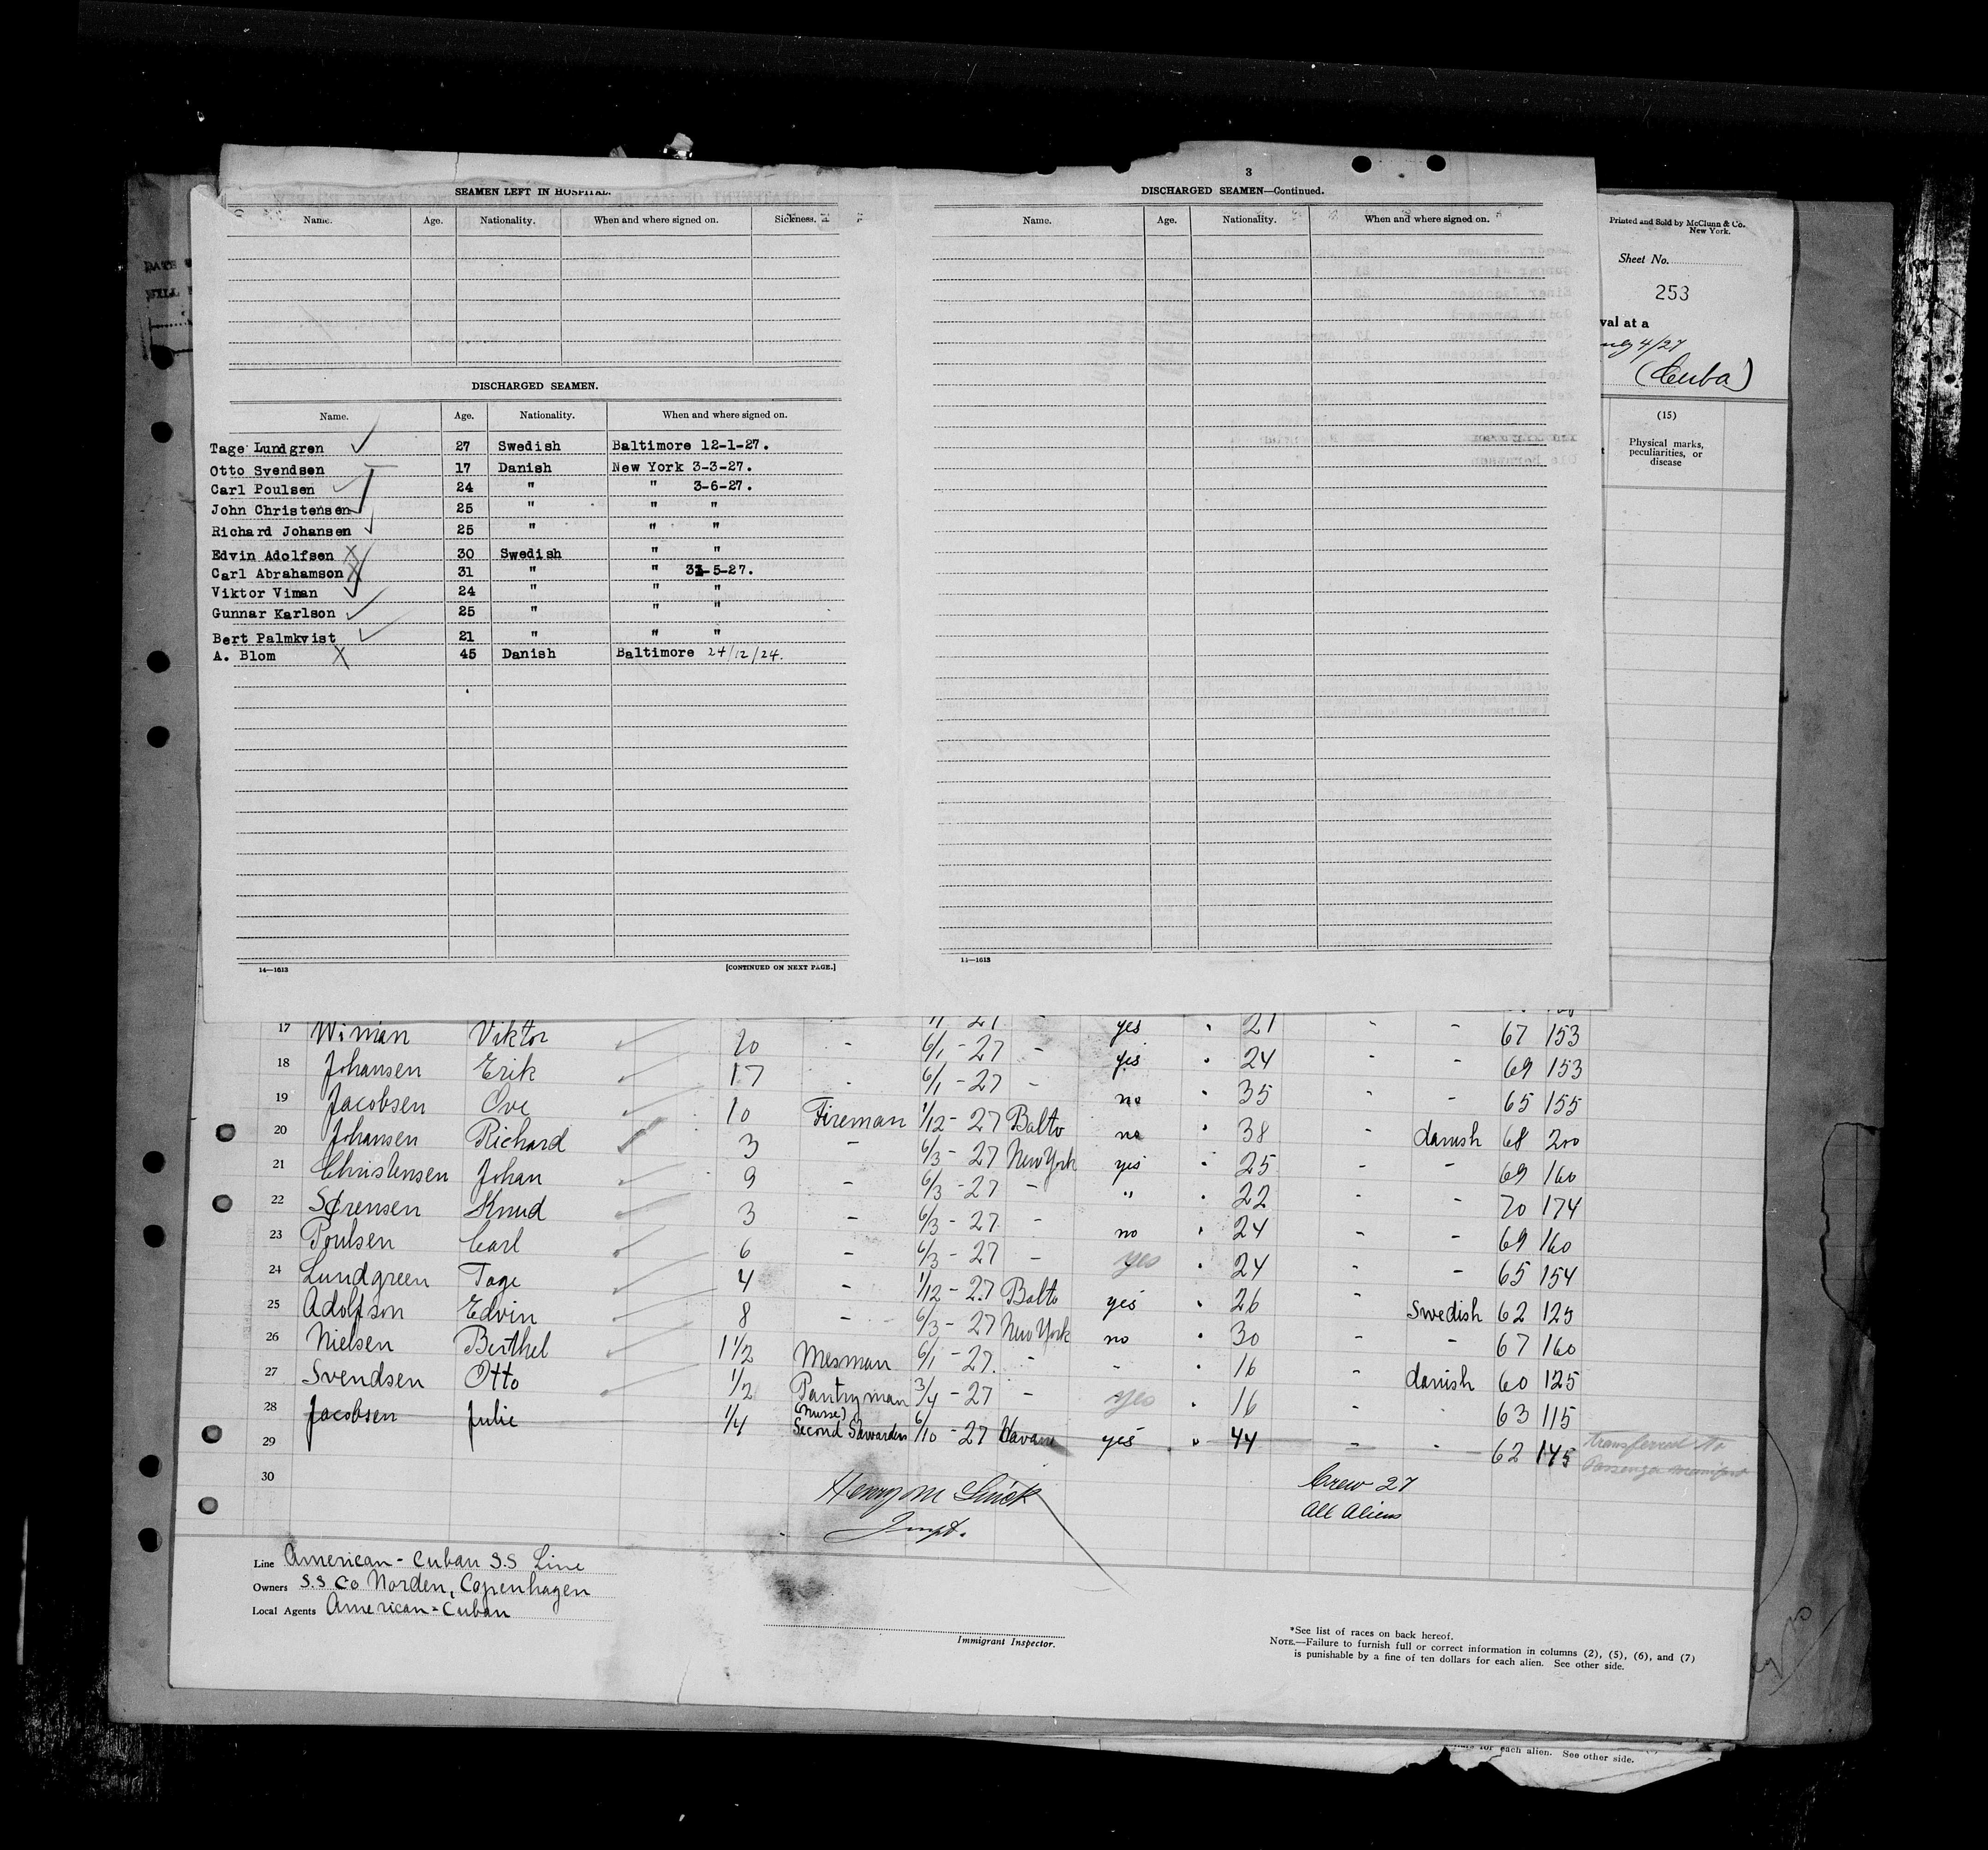 SEAMEN LEFT IN HOSPITAL.
Name. Age. Nationality. When and where signed on. Sickness.
DISCHARGED SEAMEN.
Name. Age. Nationality. When and where signed on.
Tage Lundgren 27 Swedish Baltimore 12-1-27.
Otto Svendsen 17 Danish New York 3-3-27.
Carl Poulsen 24 " " 3-6-27.
John Christensen 25 " " "
Richard Johansen 25 " " "
Edvin Adolfsen 30 Swedish " "
Carl Abrahamson 31 " " 31-5-27.
Viktor Viman 24 " " "
Gunnar Karlson 25 " " "
Bert Palmkvist 21 " " "
A. Blom 45 Danish Baltimore 24/12/24.
14—1613 [CONTINUED ON NEXT PAGE.]
3
DISCHARGED SEAMEN—Continued.
Name. Age. Nationality. When and where signed on.
Printed and Sold by McClunn & Co.
New York.
Sheet No.
253
val at a
(Cuba)
(15)
Physical marks, peculiarities, or disease
17 Wiman Viktor 20 - 6/1 - 27 - yes " 24 - - 67 153
18 Johansen Erik 17 - 6/1 - 27 - yes " 24 - - 69 153
19 Jacobsen Ove 10 Fireman 1/12 - 27 Balto no " 35 - - 65 155
20 Johansen Richard 3 - 6/3 - 27 New York no " 38 - danish 68 200
21 Christensen Johan 9 - 6/3 - 27 - yes " 25 - - 69 160
22 Sørensen Knud 3 - 6/3 - 27 - " " 22 - - 70 174
23 Poulsen Carl 6 - 6/3 - 27 - no " 24 - - 69 160
24 Lundgreen Tage 4 - 1/12 - 27 Balto yes " 24 - - 65 154
25 Adolfson Edvin 8 - 6/3 - 27 New York yes " 26 - Swedish 62 125
26 Nielsen Berthel 1 1/2 Mesman 6/1 - 27 - no " 30 - - 67 160
27 Svendsen Otto 1/2 Pantryman 3/4 - 27 - - " 16 - danish 60 125
28 Jacobsen Julie 1/4 (Nurse) Second 6/10 - 27 Havana yes " 16 63 115
29 yes " 44 - - 62 145 transferred to
Passenger manifest
30
Crew 27
All Aliens
Line American - Cuban S.S Line
Owners S.S Co Norden, Copenhagen
Local Agents American-Cuban
Immigrant Inspector.
*See list of races on back hereof.
NOTE.—Failure to furnish full or correct information in columns (2), (5), (6), and (7)
is punishable by a fine of ten dollars for each alien. See other side.
for each alien. See other side.